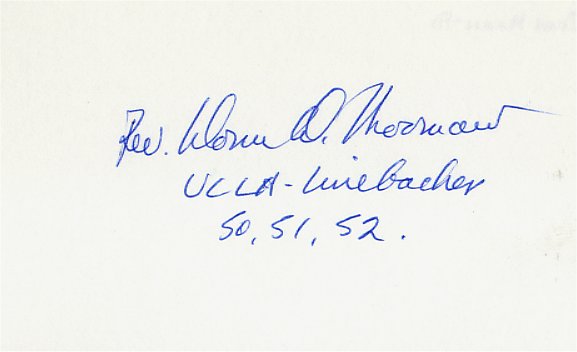 Rev. Donn D. Moomaw
UCLA - Linebacker
50, 51, 52.